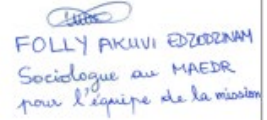 FOLLY AKUVI EDZODZINAM
Sociologue au MAEDR
pour l'équipe de la mission